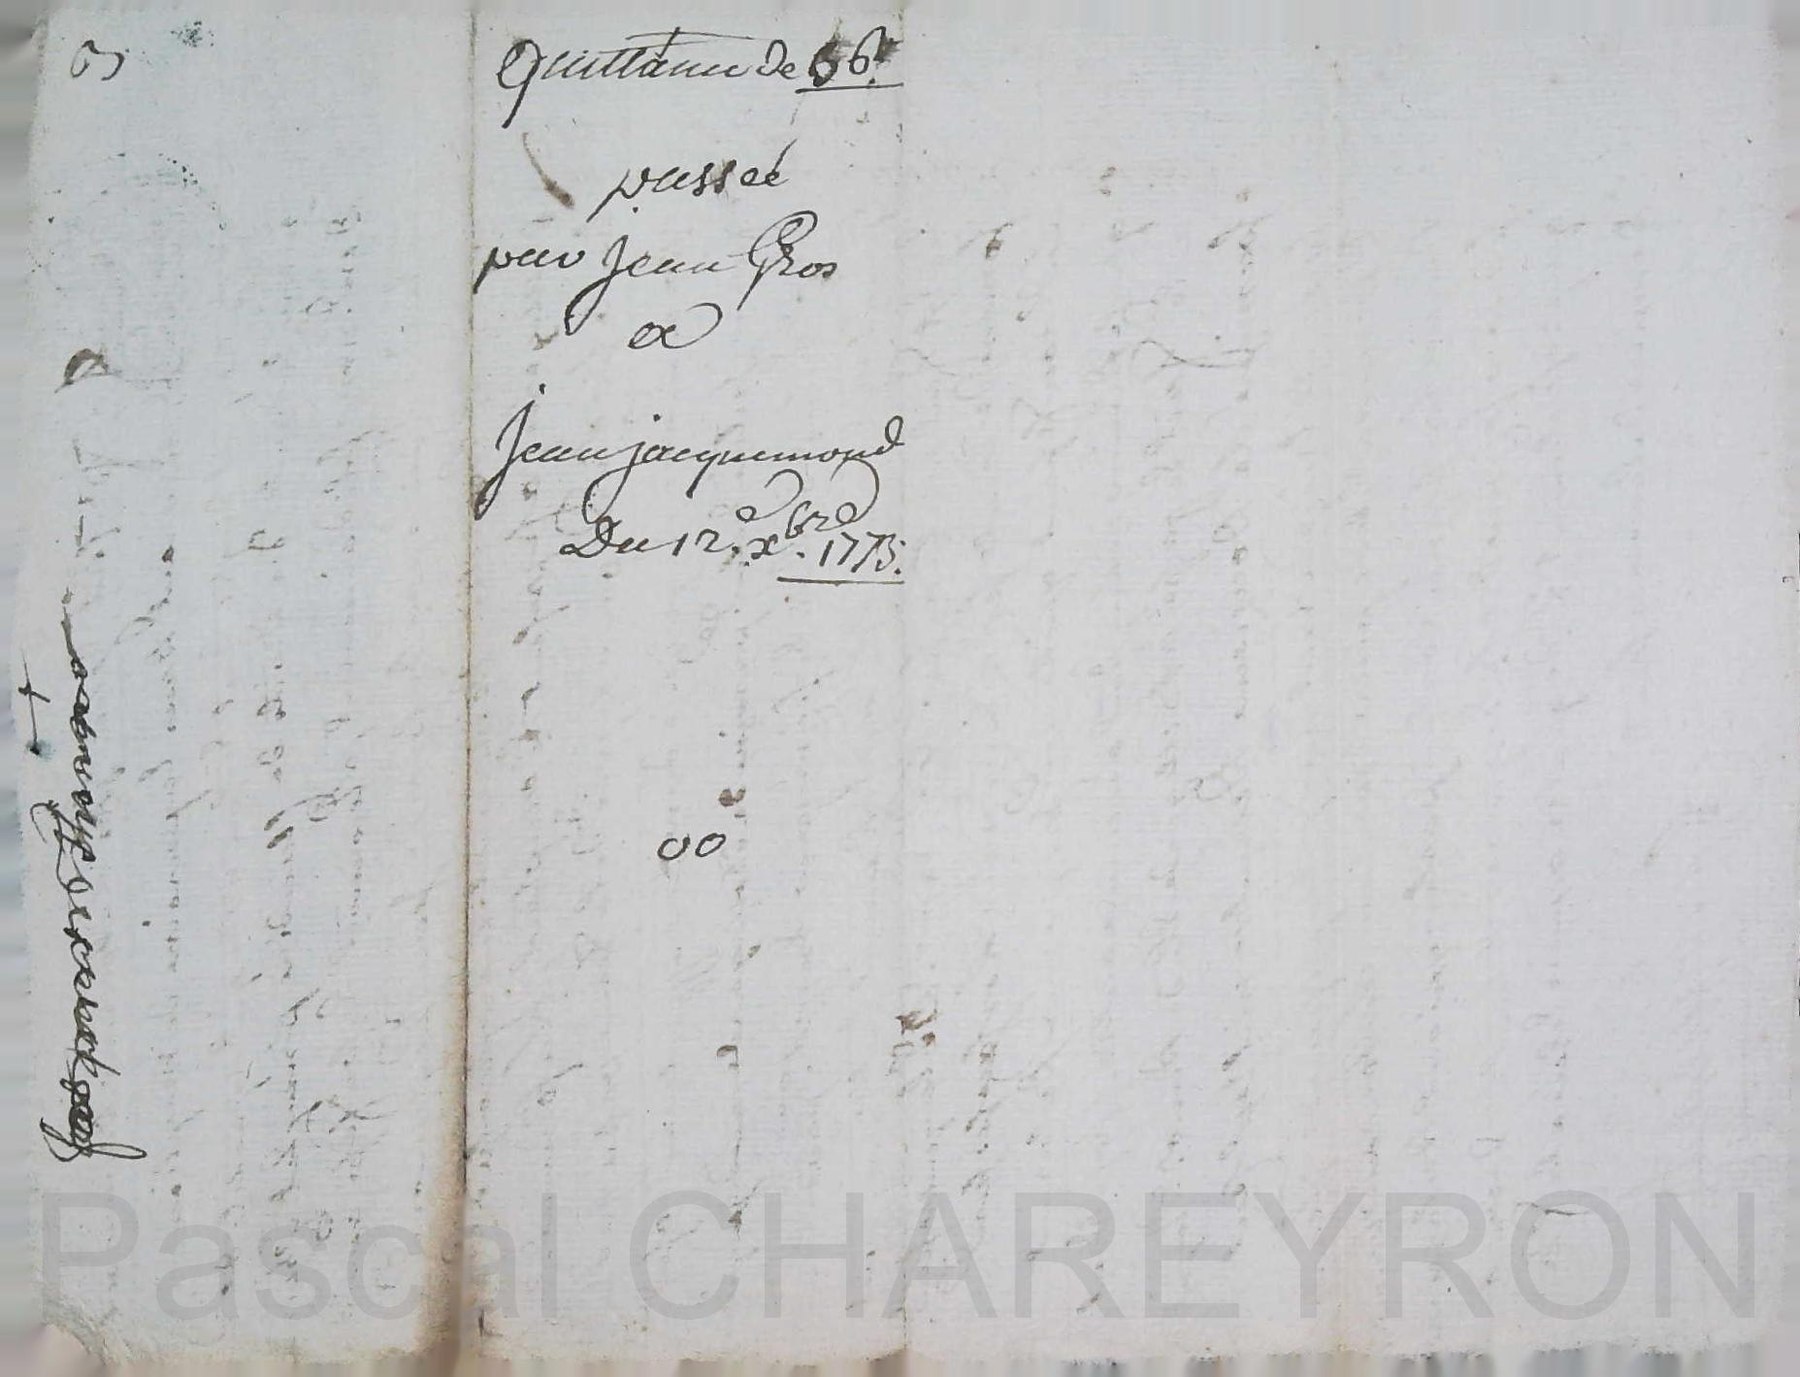 Quittance de 66#
passeé
par Jean Gros
a
Jean jacquemond
Du 12.e xbre. 1773.
00
Pascal CHAREYRON